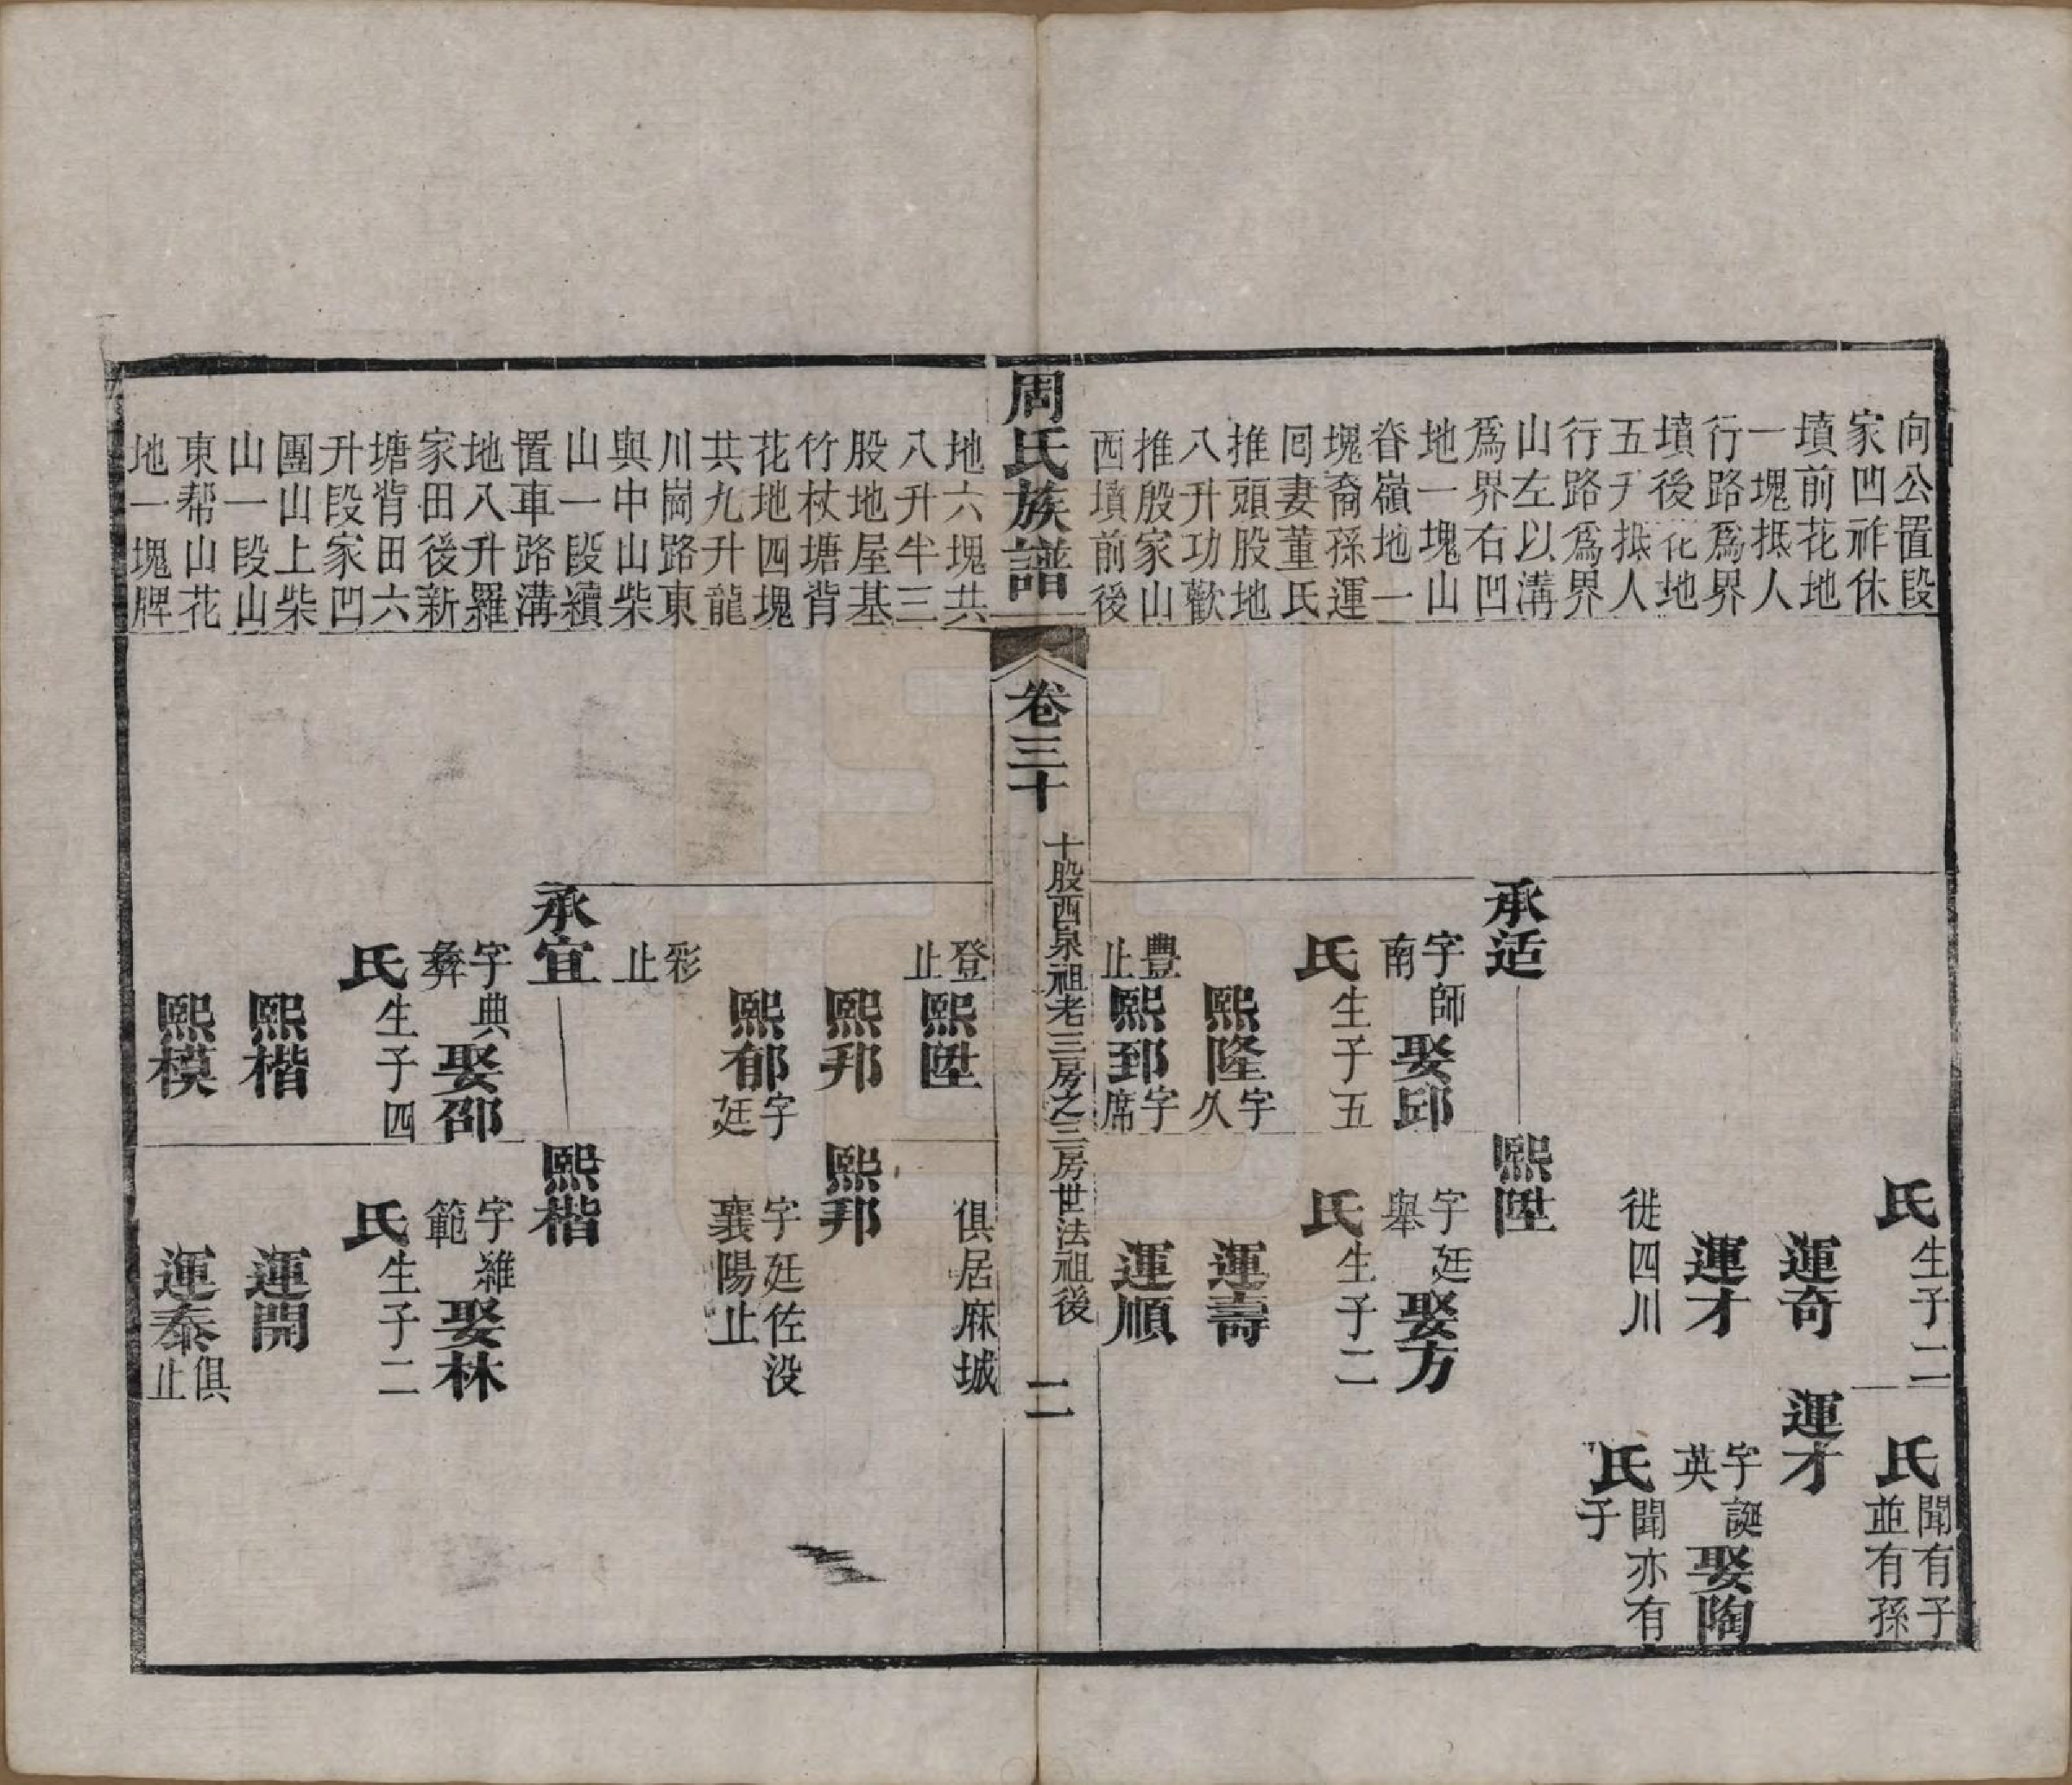 向公置段
家凹祚休
墳前花地
一塊抵人
行路爲界
墳後花地
五升抵人
行路爲界
山左以溝
爲界右凹
地一塊山
脊嶺地一
塊裔孫運
囘妻董氏
推頭股地
八升功歡
推殷家山
西墳前後
氏生子二
運奇
運才
徙四川
氏聞有子
並有孫
運才
字誕英娶陶
氏聞亦有
子
承适
字師南娶邱
氏生子五
熙隆字久
豐止
熙郅字席
熙陞
字廷舉娶方
氏生子二
運壽
運順
周氏族譜
卷三十
十股西泉祖老三房之三房世法祖後
二
地六塊共
八升半三
股地屋基
竹杖塘背
花地四塊
共九升龍
川崗路東
與中山柴
山一段續
置車路溝
地八升羅
家田後新
塘背田六
升段家凹
團山上柴
山一段山
東帮山花
地一塊脾
登止
熙陞
熙邦
熙郁字廷
彩止
俱居麻城
熙邦
字廷佐没
襄陽止
承宜
字典彝娶邵
氏生子四
熙楷
熙模
熙楷
字維範娶林
氏生子二
運開
運泰俱止